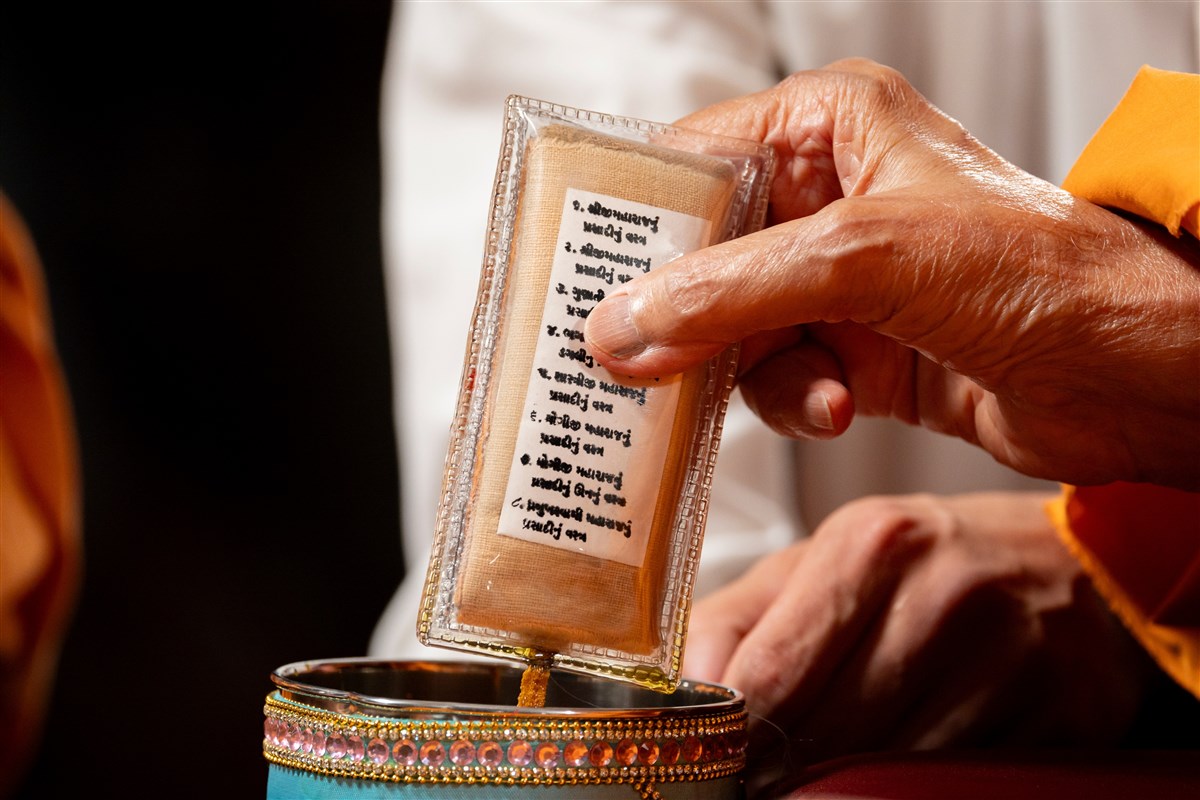 ૧. શ્રીજીમહારાજનું
પ્રસાદીનું વસ્ત્ર
૨. શ્રીજીમહારાજનું
પ્રસાદીનું
૩.
૪.
૫. શાસ્ત્રીજી મહારાજનું
પ્રસાદીનું વસ્ત્ર
૬. યોગીજી મહારાજનું
પ્રસાદીનું વસ્ત્ર
૭. યોગીજી મહારાજનું
પ્રસાદીનું ઊનનું વસ્ત્ર
૮. પ્રમુખસ્વામી મહારાજનું
પ્રસાદીનું વસ્ત્ર